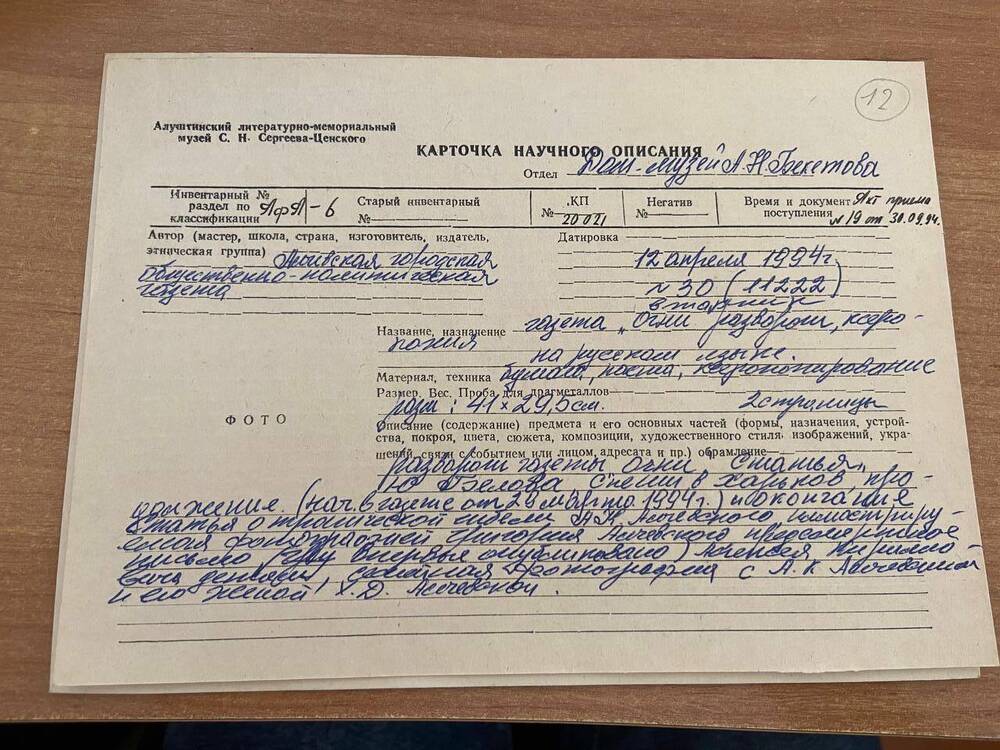 12
Алуштинский литературно-мемориальный
музей С. Н. Сергеева-Ценского
КАРТОЧКА НАУЧНОГО ОПИСАНИЯ
Отдел Дом-музей А.Н.Бекетова
Инвентарный №
раздел по
классификации АфА-6
Старый инвентарный
№
КП
№ 20021
Негатив
№
Время и документ Акт приема
поступления №19 от 30.09.94.
Автор (мастер, школа, страна, изготовитель, издатель,
этническая группа) городская
общественно-политическая
газета
Датировка
12 апреля 1994г.
№30 (11222)
вторник
Название, назначение газета „Огни" разворот, ксеро-
копия
на русском языке.
Материал, техника бумага, паста, ксерокопирование
Размер. Вес. Проба для драгметаллов
разм: 41×29,5см. 2 страницы
ФОТО
Описание (содержание) предмета и его основных частей (формы, назначения, устрой-
ства, покроя, цвета, сюжета, композиции, художественного стиля изображений, укра-
шений, связи с событием или лицом, адресата и пр.) обрамление
разворот газеты Огни, Статья
Ю Белова Спеши в Харьков, про-
должение. (нач. в газете от 29 марта 1994г.) и окончание
Статья о трагической А.К Алчевского иллюстриру-
емая фотографией Григория Алчевского предсмертное
письмо (впервые опубликовано) Алексея Кирилло-
вича фотография с А.К Алчевским
и его женой Х.Д. Алчевской.